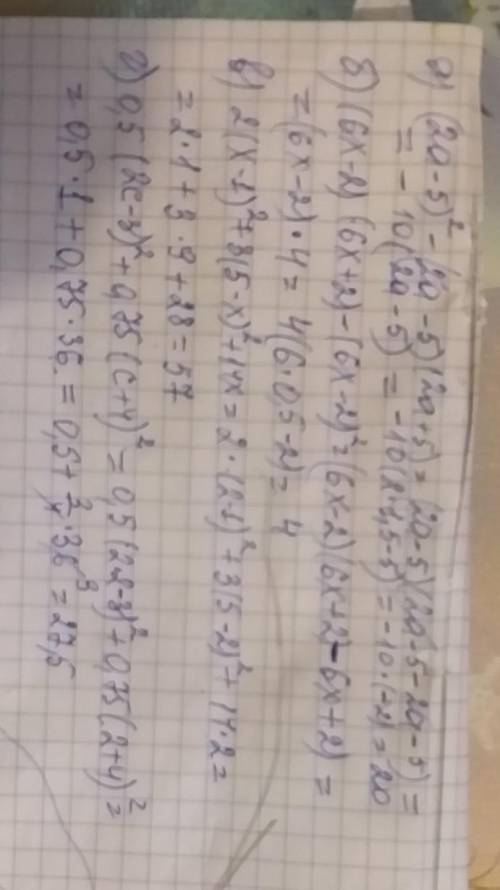 а) (2a-5)² - (2a-5)(2a+5) = (2a-5)(2a-5-2a-5) =
= -10(2a-5) = -10(2·1,5-5) = -10·(-2) = 20
б) (6x-2)(6x+2) - (6x-2)² = (6x-2)(6x+2-6x+2) =
= (6x-2)·4 = 4(6·0,5-2) = 4
в) 2(x-1)² + 3(5-x)² + 14x = 2·(2-1)² + 3(5-2)² + 14·2 =
= 2·1 + 3·9 + 28 = 57
г) 0,5(2c-3)² + 0,75(c+4)² = 0,5(2·2-3)² + 0,75(2+4)² =
= 0,5·1 + 0,75·36 = 0,5 + 3/4·36⁹ = 27,5